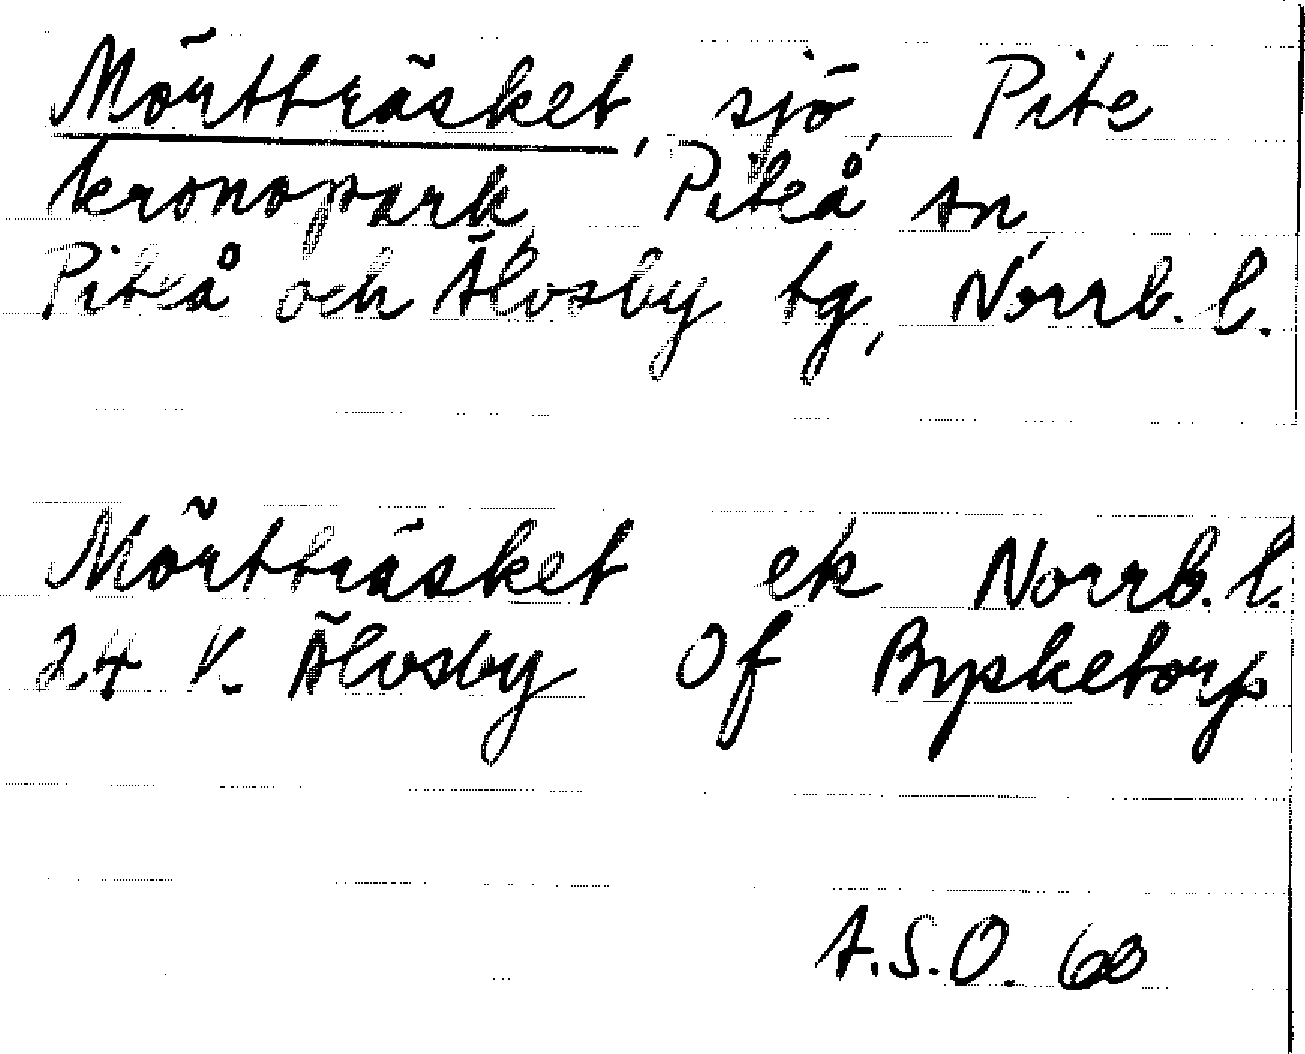 Mörtträsket, sjö, Pite
kronopark, Piteå sn,
Piteå och Älvsby tg, Norrb. l.
Mörtträsket ek Norrb. l.
24 K. Älvsby Of Bysketorp
A.S.O. 60